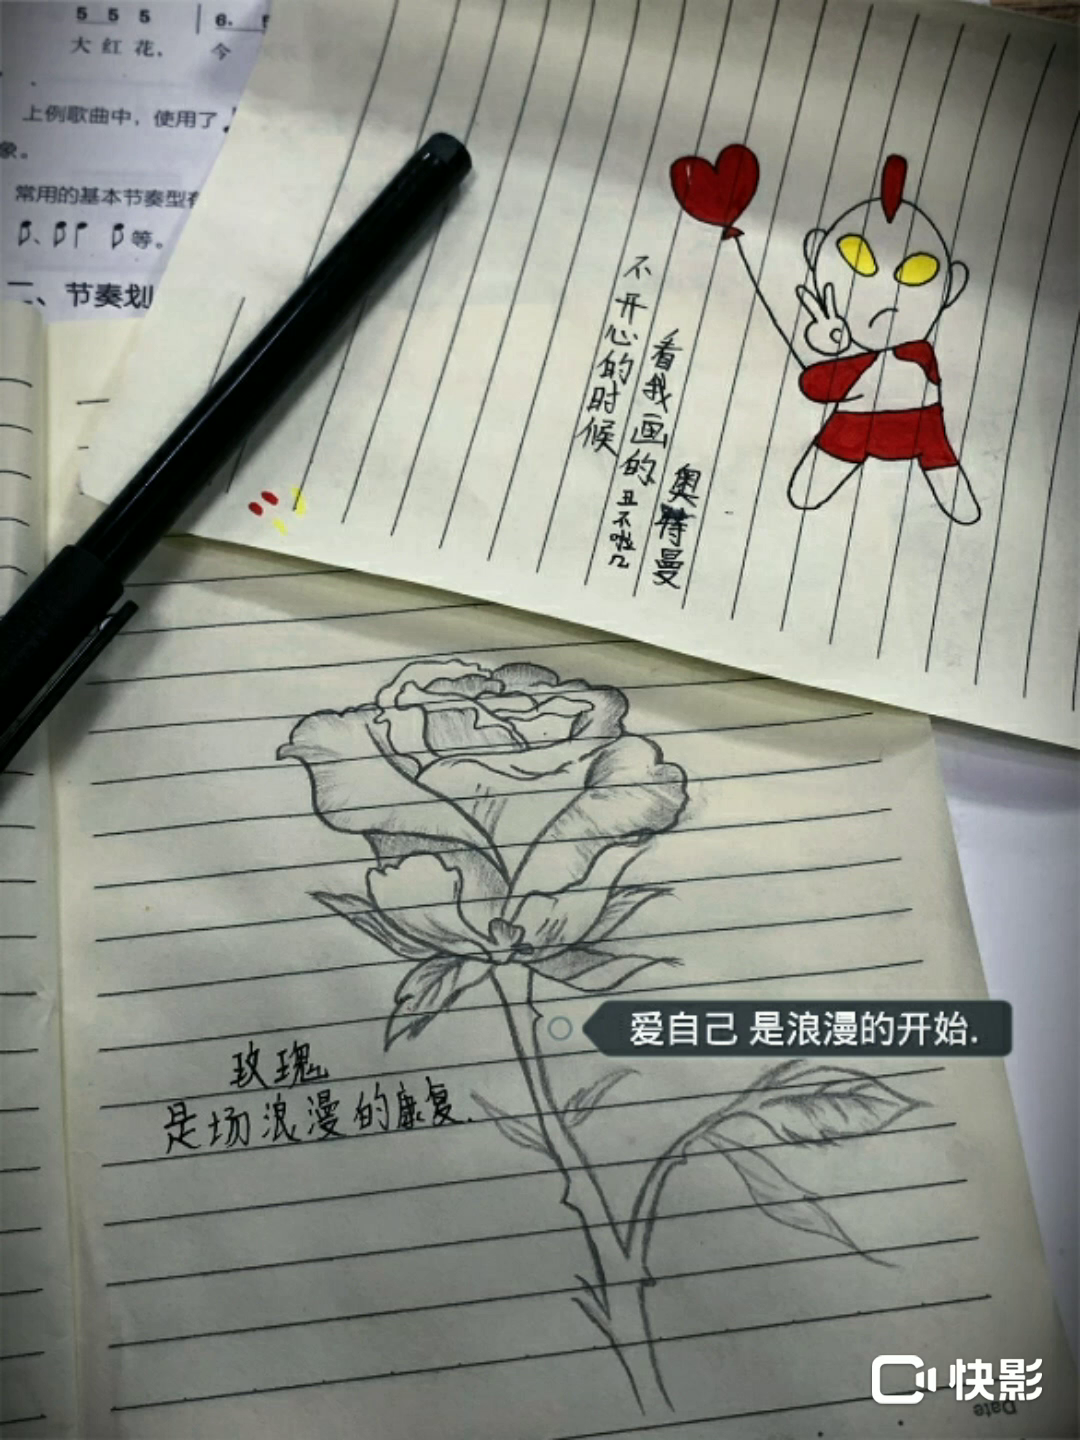 5 5 5 6.
大 红 花， 今
上例歌曲中，使用了
象。
常用的基本节奏型有
等。
二、节奏划
不开心的时候
看我画的丑不啦几
奥特曼
爱自己 是浪漫的开始.
玫瑰
是场浪漫的康复.
快影
Date